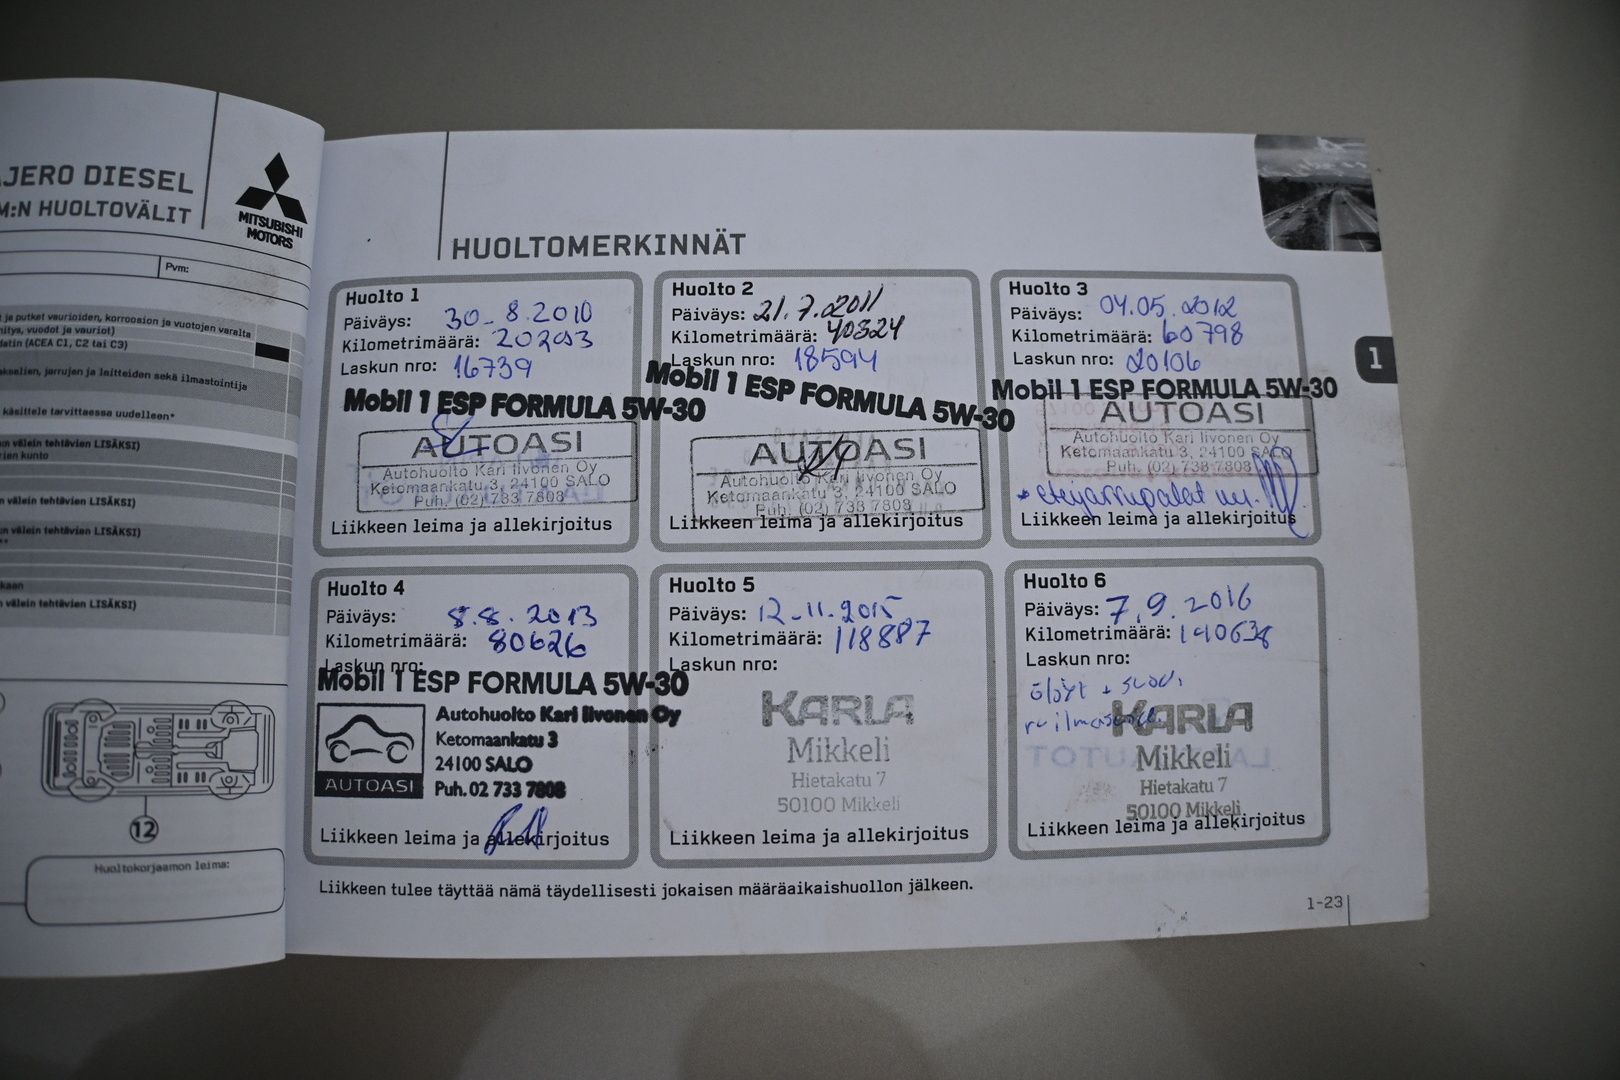 AJERO DIESEL
M:N HUOLTOVÄLIT
MITSUBISHI
MOTORS
Pvm:
t ja putket vaurioiden, korroosion ja vuotojen varalta
vuodot ja vauriot)
(ACEA C1, C2 tai C3)
jarrujen ja laitteiden sekä ilmastointija
käsittele tarvittaessa uudelleen*
välein tehtävien LISÄKSI)
kunto
välein tehtävien LISÄKSI)
välein tehtävien LISÄKSI)
välein tehtävien LISÄKSI)
12
Huoltokorjaamon leima:
HUOLTOMERKINNÄT
1
Huolto 1
Päiväys: 30-8.2010
Kilometrimäärä: 20203
Laskun nro: 16739
Mobil 1 ESP FORMULA 5W-30
AUTOASI
Autohuolto Kari Iivonen Oy
Ketomaankatu 3, 24100 SALO
Puh. (02) 733 7808
Liikkeen leima ja allekirjoitus
Huolto 2
Päiväys: 21.7.2011
Kilometrimäärä: 40324
Laskun nro: 18594
Mobil 1 ESP FORMULA 5W-30
AUTOASI
Autohuolto Kari Iivonen Oy
Ketomaankatu 3, 24100 SALO
Puh. (02) 738 7808
Liikkeen leima ja allekirjoitus
Huolto 3
Päiväys: 04.05.2012
Kilometrimäärä: 60798
Laskun nro: 20106
Mobil 1 ESP FORMULA 5W-30
AUTOASI
Autohuolto Kari Iivonen Oy
Ketomaankatu 3, 24100 SALO
Puh. (02) 738 7808
* etujarrupalat uu.
Liikkeen leima ja allekirjoitus
Huolto 4
Päiväys: 8.8.2013
Kilometrimäärä: 80626
Laskun nro:
Mobil 1 ESP FORMULA 5W-30
AUTOASI
Autohuolto Kari Iivonen Oy
Ketomaankatu 3
24100 SALO
Puh. 02 733 7808
Liikkeen leima ja allekirjoitus
Huolto 5
Päiväys: 12-11.2015
Kilometrimäärä: 118887
Laskun nro:
KARLA
Mikkeli
Hietakatu 7
50100 Mikkeli
Liikkeen leima ja allekirjoitus
Huolto 6
Päiväys: 7.9.2016
Kilometrimäärä: 140638
Laskun nro:
Öljyt + suod.
KARLA
Mikkeli
Hietakatu 7
50100 Mikkeli
Liikkeen leima ja allekirjoitus
Liikkeen tulee täyttää nämä täydellisesti jokaisen määräaikaishuollon jälkeen.
1-23